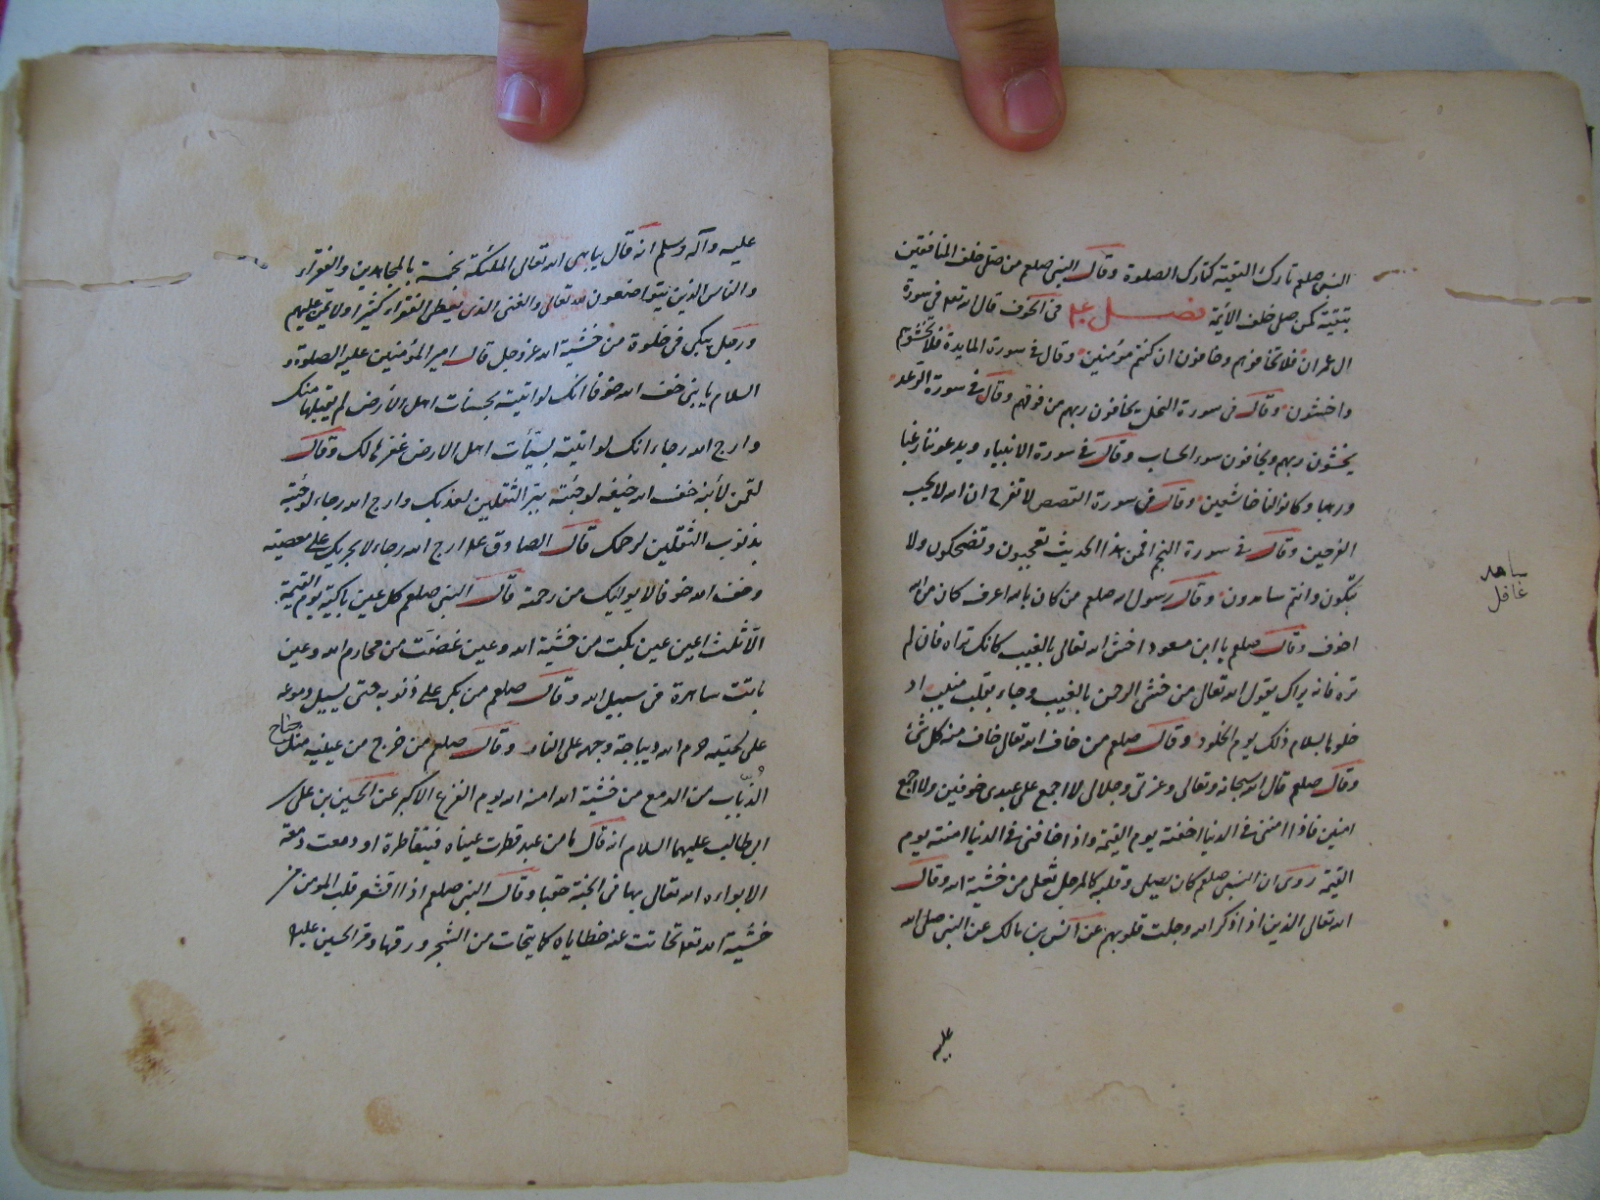 النبى صلعم تارك التقية كتارك الصلوة وقال النبى صلعم من صلى خلف المنافقين
بتقية كمن صلى خلف الأئمة فصل فى الخوف قال الله تعلى فى سورة
ال عمران فلا تخافوهم وخافون ان كنتم مؤمنين وقال فى سورة المايدة فلا تخشوهم
واخشون وقال فى سورة النحل يخافون ربهم من فوقهم وقال فى سورة الرعد
يخشون ربهم ويخافون سوء الحساب وقال فى سورة الانبياء ويدعوننا رغبا
ورهبا وكانوا لنا خاشعين وقال فى سورة القصص لا تفرح ان الله لا يحب
الفرحين وقال فى سورة النجم افمن هذا الحديث تعجبون وتضحكون ولا
تبكون وانتم سامدون وقال رسول الله صلعم من كان بالله اعرف كان من الله
اخوف وقال صلعم يا ابن مسعود اخش الله تعالى بالغيب كانك تراه فان لم
تره فانه يراك يقول الله تعالى من خشى الرحمن بالغيب وجاء بقلب منيب اد
خلوها بسلام ذلك يوم الخلود وقال صلعم من خاف الله تعالى خاف منه كل شئ
وقال صلعم قال الله سبحانه وتعالى وعزتى وجلالى لا اجمع على عبدى خوفين ولا اجمع
امنين فاذا امننى فى الدنيا اخفته يوم القيمة واذا خافنى فى الدنيا امنته يوم
القيمة روى ان النبى صلعم كان يصلى وقلبه كالمرجل تغلى من خشية الله وقال
الله تعالى الذين اذا ذكر الله وجلت قلوبهم عن انس بن مالك عن النبى صلى الله
عليه
سامد
غافل
عليه وآله وسلم انه قال يباهى الله تعالى الملئكة بخمسة بالمجاهدين والفقراء
والناس الذين يتواضعون لله تعالى والغنى الذى يعطى الفقراء كثيرا ولا يمن عليهم
ورجل يبكى فى خلوة من خشية الله عز وجل قال امير المؤمنين عليه الصلوة و
السلام يا بنى خف الله خوفا انك لو اتيته بحسنات اهل الارض لم تقبلها منك
وارج الله رجاء انك لو اتيته بسيئات اهل الارض غفرها لك وقال
لقمن لأبنه خف الله خيفة لو جئته ببر الثقلين لعذبك وارج الله رجاء لو جئته
بذنوب الثقلين لرحمك قال الصادق ع ارج الله رجاء لا يجريك على معصيته
وخف الله خوفا لا يوايك من رحمته قال النبى صلعم كل عين باكية يوم القيمة
الا ثلث اعين عين بكت من خشية الله وعين غضت من محارم الله وعين
باتت ساهرة فى سبيل الله وقال صلعم من بكى على ذنوبه حتى يسيل دموعه
على لحيته حرم الله ديباجة وجهه على النار وقال صلعم من خرج من عينيه مثل جناح
الذباب من الدمع من خشية الله امنه الله يوم الفزع الاكبر عن الحسين بن على
ابى طالب عليهما السلام انه قال ما من عبد قطرت عيناه فينا قطرة او دمعت دمعة
الا بواءه الله تعالى بها فى الجنة حقبا وقال النبى صلعم اذا اقشعر قلب المؤمن من
خشية الله تعه تحاتت عنه خطاياه كما يتحات من الشجر ورقها وقر الحسين عليه